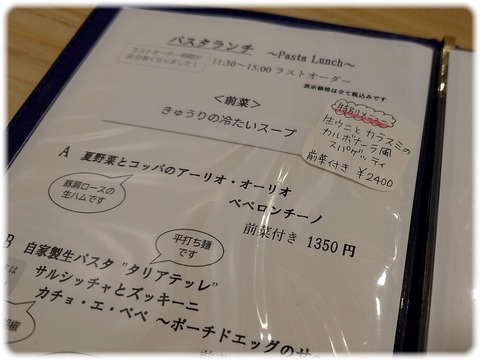 パスタランチ ～Pasta Lunch～
ラストオーダー時間が
30分長くなりました！
11:30～15:00 ラストオーダー
表示価格は全て税込みです
＜前菜＞
きゅうりの冷たいスープ
特別メニュー
生ウニとカラスミの
カルボナーラ風
スパゲッティ
前菜付き ￥2400
A 夏野菜とコッパのアーリオ・オーリオ
ペペロンチーノ
豚肩ロースの
生ハムです
前菜付き 1350 円
平打ち麺
です
B 自家製生パスタ "タリアテッレ"
サルシッチャとズッキーニ
カチョ・エ・ペペ ～ポーチドエッグのサ
は
胡椒
前菜